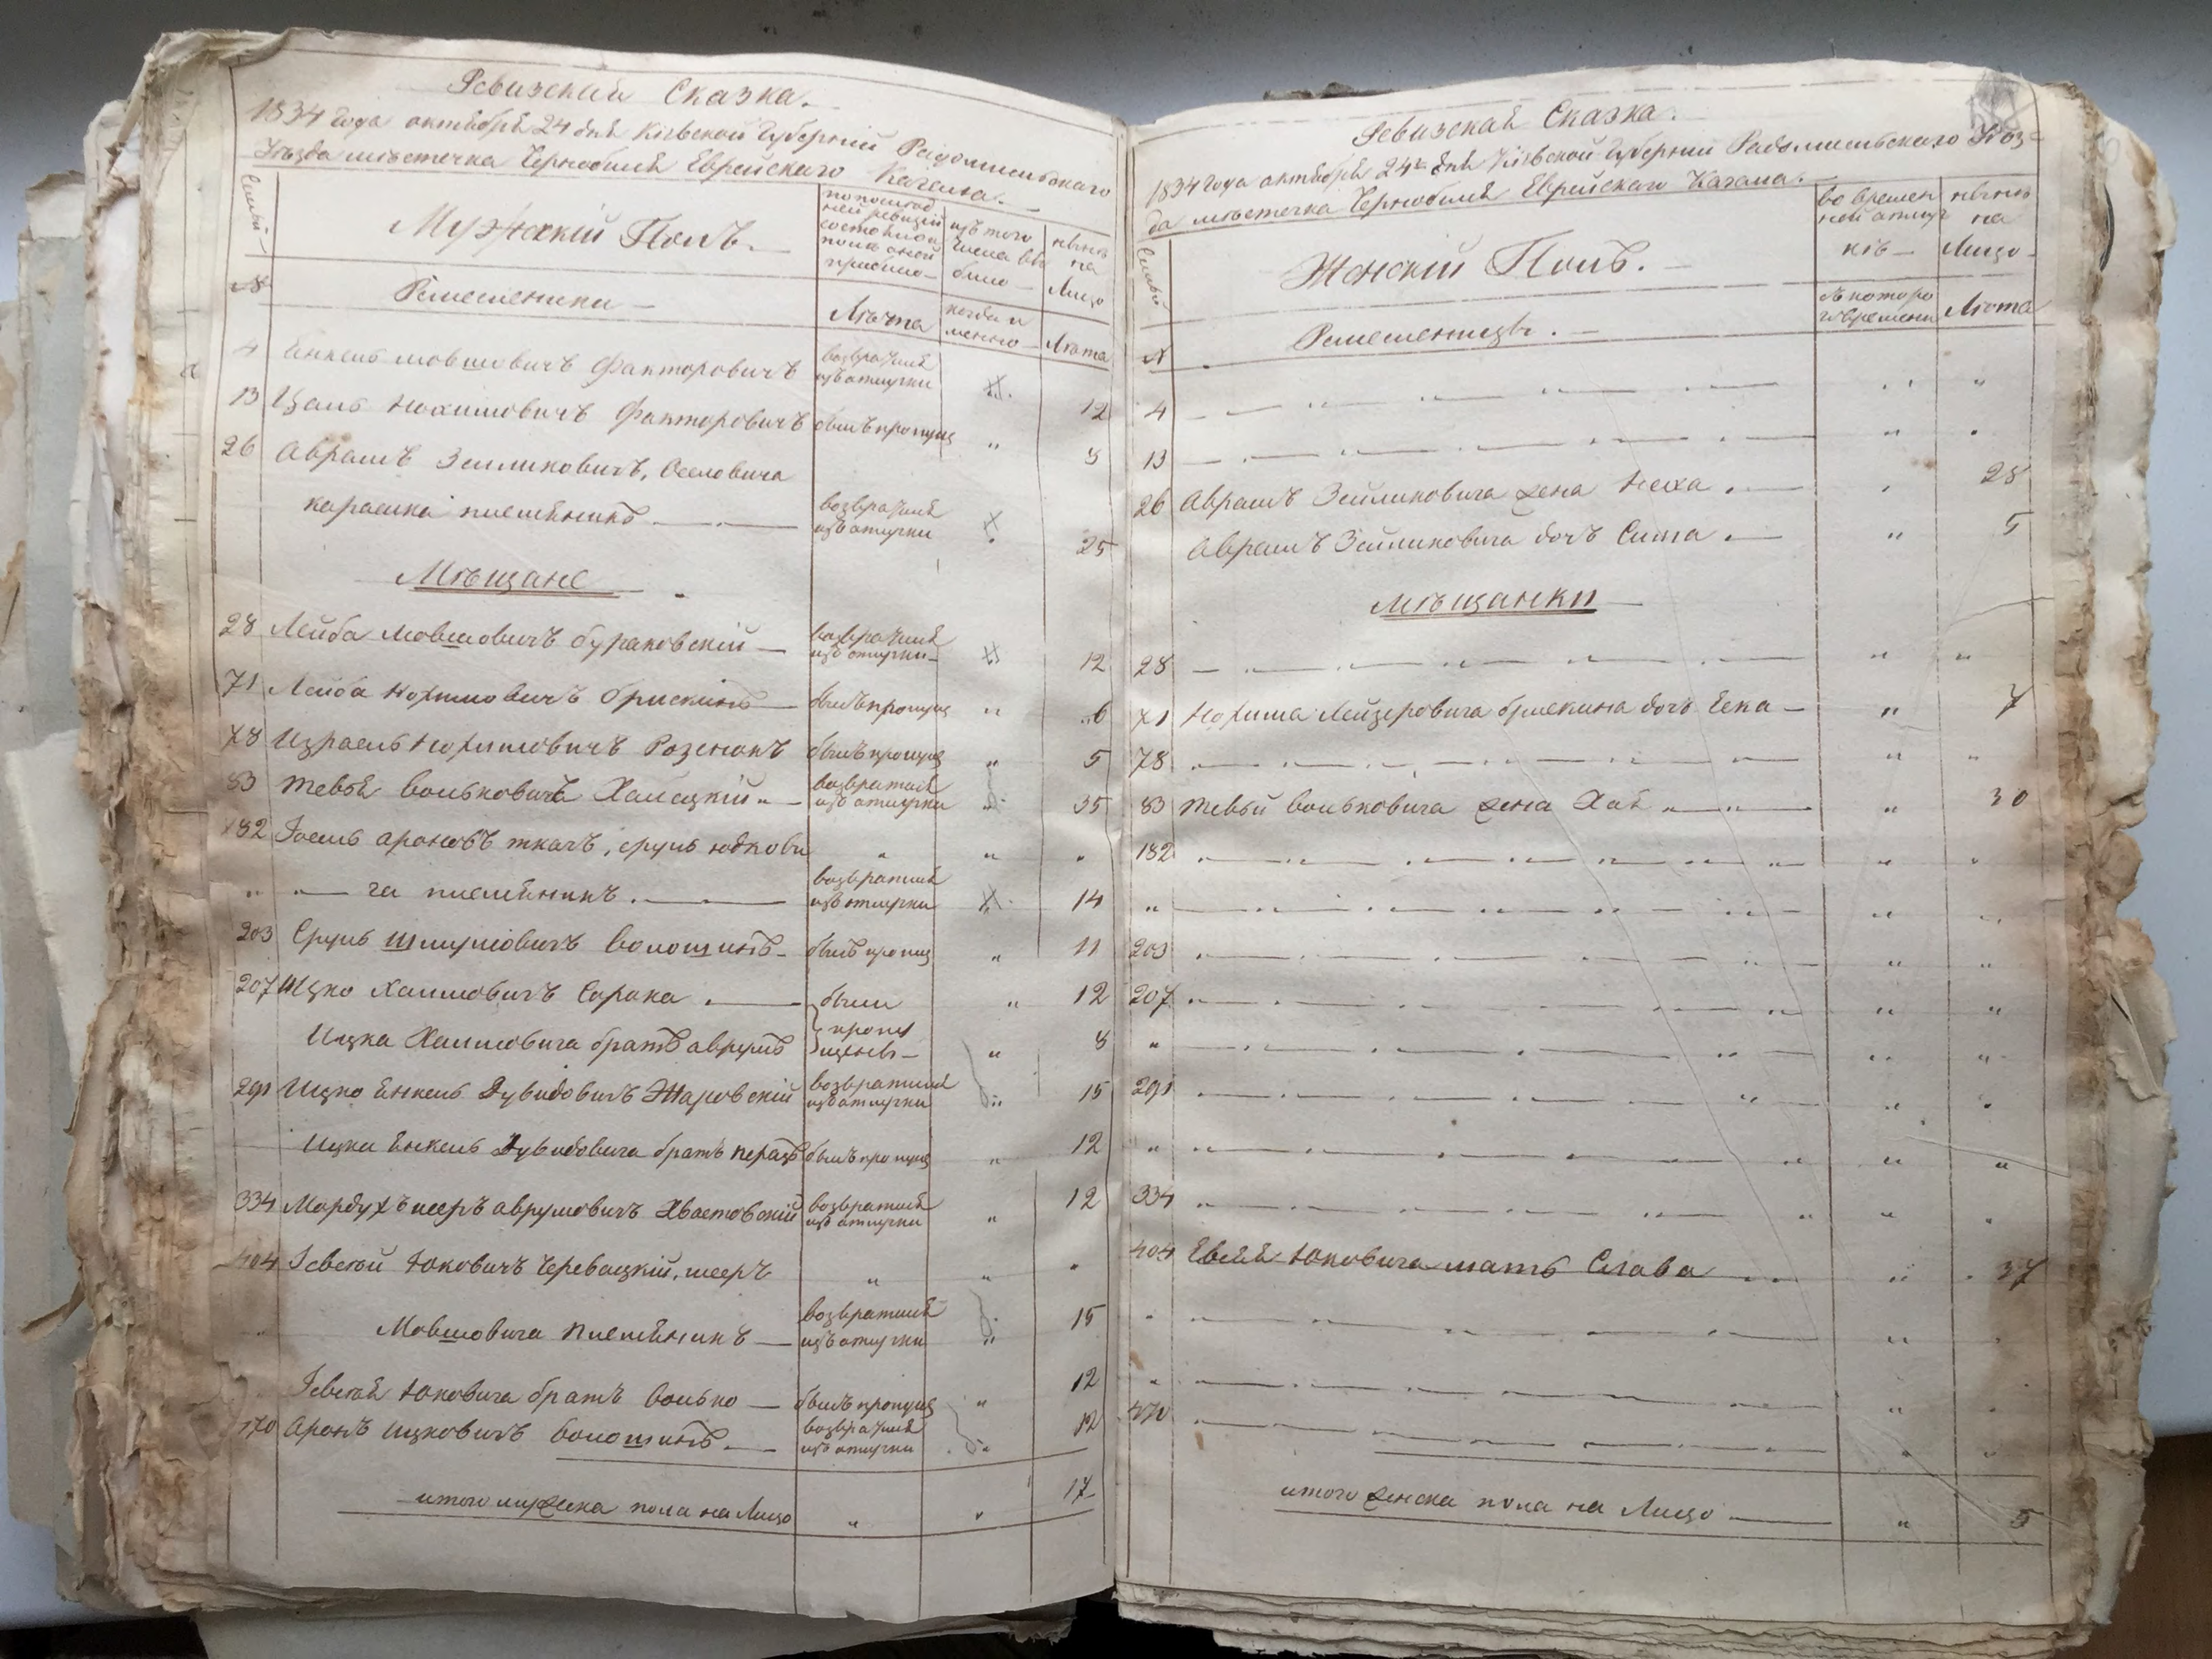 Ревизская Сказка.
1834 года октября 24 дня Кіевской Губерніи Радомысльскаго
Уезда местечка Чернобыля Еврейскаго Кагала.
Мужскій Полъ.
№
Ремесленики
по последней ревизіи состояло и после оной прибыло
изъ того числа выбыло
ныне на Лицо
Лѣта
когда именно
Лѣта
4 Янкель Мовшовичъ Факторовичъ возвратился изъ отлучки 12
13 Цаль Нохимовичъ Факторовичъ былъ пропущ „ 8
26 Аврамъ Зейликовичъ, Оселовича
карасика племянникъ возвратился изъ отлучки 25
Мѣщане
28 Лейба Мовшовичъ бураковскій возвратился изъ отлучки 12
71 Лейба Нохимовичъ брискинъ былъ пропущ „ 6
78 Израель Нохимовичъ Розенанъ былъ пропущ „ 5
83 Тевья Вольковичъ Хабацкій возвратился изъ отлучки 35
182 Іоель ароновъ ткачъ, сруль юдкови „ „ „
„ ча племянникъ. возвратился изъ отлучки 14
203 Сруль Шмулiовичъ Волошинъ былъ пропущ „ 11
207 Ицко Хаимовичъ Сорока были „ 12
Ицка Хаимовича братъ аврумъ пропущены „ 8
291 Ицко Янкель Дувидовичъ Жаровскій возвратился изъ отлучки 15
Ицка Янкель Дувидовича братъ перецъ былъ пропущ „ 12
334 Мордухъ мееръ аврумовичъ Хвастовскій возвратился изъ отлучки „ 12
404 Іевсей Юковичъ Черевацкій, мееръ „ „ „
Мовшовича племянникъ возвратился изъ отлучки 15
Іевсея Юковича братъ волько былъ пропущ „ 12
470 Аронъ Ицковичъ волошинъ возвратился изъ отлучки 12
итого мужеска пола на Лицо „ „ 17
Ревизская Сказка.
1834 года октября 24го дня Кіевской Губерніи Радомысльскаго Уез-
да местечка Чернобыля Еврейскаго Кагала.
Женскій Полъ.
во временной отлучкѣ
ныне на Лицо
№
Ремесленицы.
съ котораго времени
Лѣта
4
13
26 Аврамъ Зейликовича жена Неха „ 28
Аврамъ Зейликовича дочь Сима „ 5
Мѣщанки
28
71 Нохима Лейзеровича брискина дочь Чека „ 7
78
83 Тевьи Вольковича жена Хая „ 30
182
203
207
291
334
404 Евсея Юковича мать Слава „ 37
470
итого женска пола на Лицо „ 5